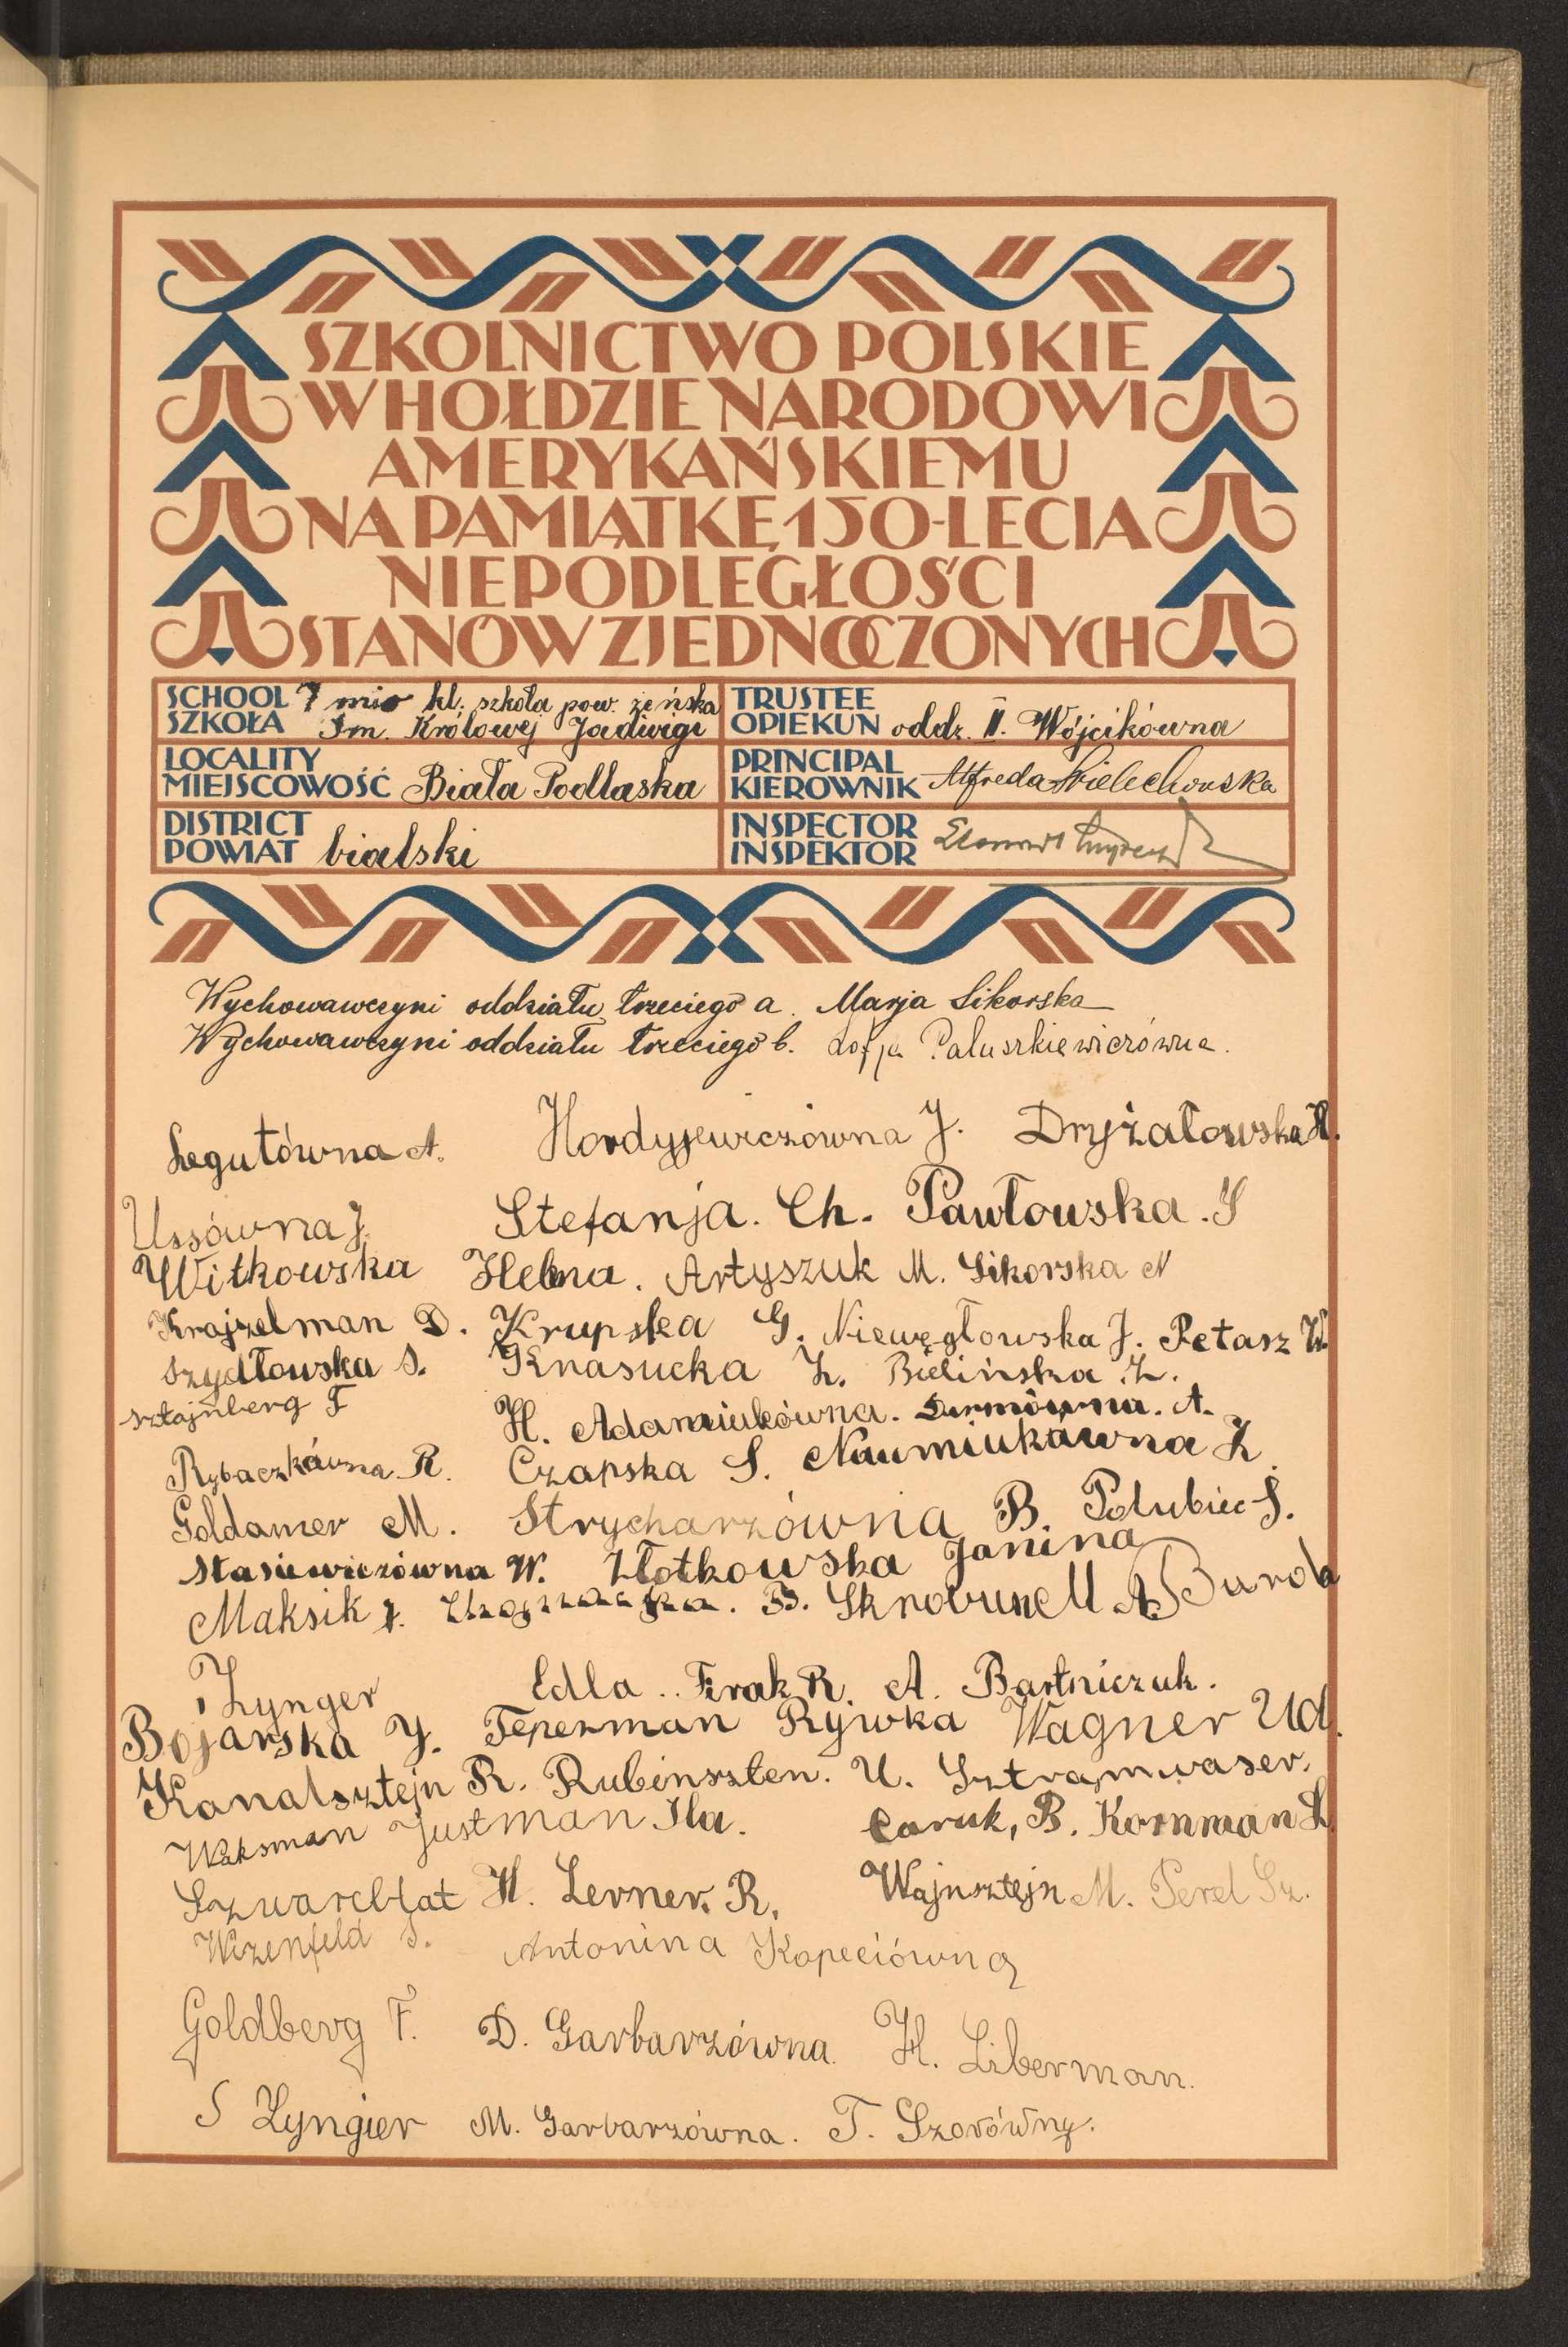 SZKOLNICTWO POLSKIE
W HOŁDZIE NARODOWI
AMERYKAŃSKIEMU
NA PAMIĄTKĘ 150-LECIA
NIEPODLEGŁOŚCI
STANÓW ZJEDNOCZONYCH
SCHOOL
SZKOŁA
7 mio kl. szkoła pow. żeńska
Im. Królowej Jadwigi
TRUSTEE
OPIEKUN oddz. II. Wójcikówna
LOCALITY
MIEJSCOWOŚĆ Biała Podlaska
PRINCIPAL
KIEROWNIK Alfreda
DISTRICT
POWIAT bialski
INSPECTOR
INSPEKTOR
Wychowawczyni oddziału trzeciego a. Marja Sikorska
Wychowawczyni oddziału trzeciego b. Zofja Paluszkiewiczówna.
Legutówna A. Hordyjewiczówna J. Dryżałowska H.
Ussówna J. Stefanja. Ch. Pawłowska. S
Witkowska Helena. Artyszuk M. Sikorska N
Krajzelman D. Krupska G. Niewęgłowska J. Petasz W.
Szydłowska S. Knasucka Z. Bielińska Z.
Sztajnberg F H. Adamiukówna. Durmówna. A.
Rybaczkówna R. Czapska S. Naumiukówna Z.
Goldamer M. Strycharzówna B. Połubiec S.
Stasiewiczówna W. Złotkowska Janina
Maksik J. B. Skrobun M A. Buroda
Zynger Edla. Frak R. A. Bartniczuk.
Bojarska J. Teperman Rywka Wagner Ud.
Kanalsztejn R. Rubinszten. U. Sztramwaser.
Waksman Justman Ila. Caruk, B. Kornman L
Szwarcblat H. Lerner. R. Wajnsztejn M. Perel Sz.
Wizenfeld S. Antonina Kopeciówna
Goldberg F. D. Garbarzówna. H. Liberman.
S Zyngier M. Garbarzówna. T. Szorówny.